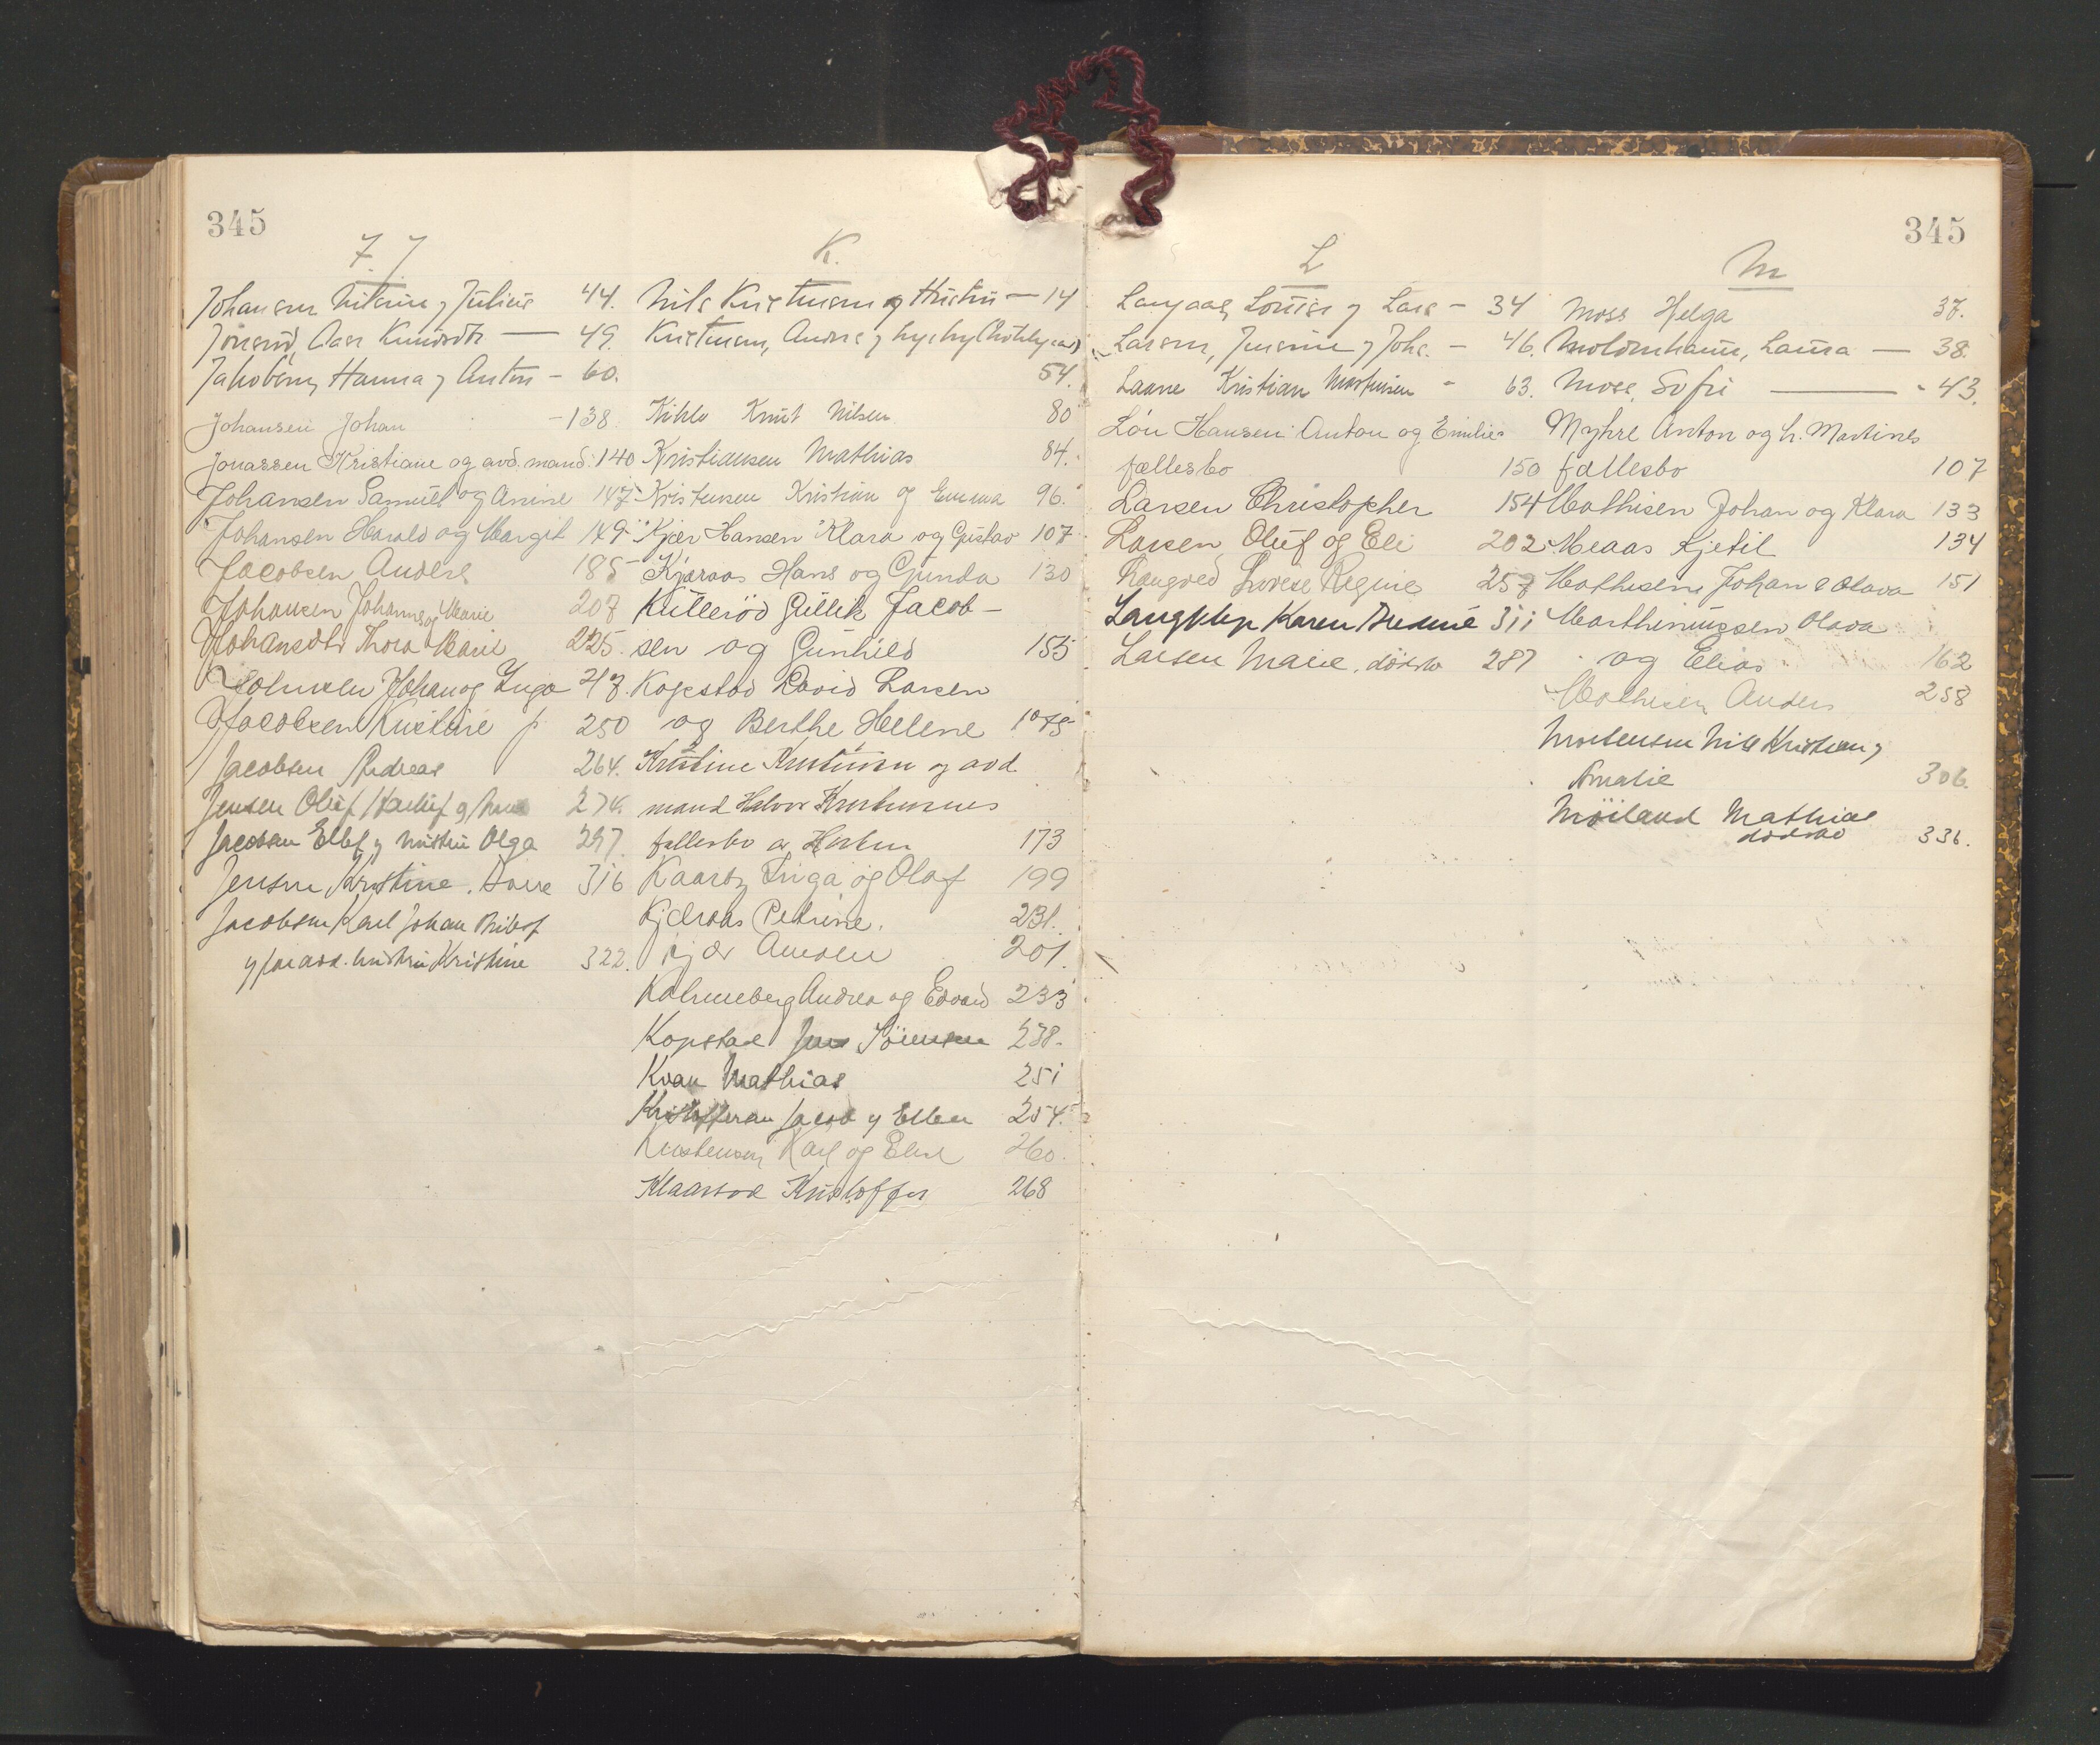 345
J. J.
Johansen Nilsine og Julius 44.
Jonsrud, Aase Knudsdtr — 49.
Jakobsen, Hanna og Anton – 60.
Johansen Johan – 138.
Jonassen Kristiane og avd. mand. 140
Johansen Samuel og Anine 147
Johansen Harald og Margit 149
Jacobsen Anders 185
Johansen Johannes og Marie 207
Johansdtr Thora Marie 225.
Johansen Johan og Inga
Jacobsen Kristine 250
Jacobsen Andreas 264.
Jensen Oluf
Jacobsen Ellef og hustru Olga 297
Jensen Kristine. 316
Jacobsen Karl Johan
og hustru Kristine 322.
K.
Nils Kristensen og Hustru — 14
Kristensen, Andrs
54.
Kihle Knut Nilsen 80
Kristiansen Mathias 84.
Kristensen Kristian og Emma 96.
Kjær Hansen Klara og Gustav 107
Kjæraas Hans og Gunda 130
Kullerød Gullik Jacob-
sen og Gunhild 155
Kopstad David Larsen
og Berthe Helene
Kristine Kristensen og avd.
mand Halvor Kristensens
fællesbo 173
Kaarby Inga og Olaf 199
Kjæraas Petrine. 231.
Kjær Amsen 201.
Kolmeberg Andrea og Edvard 233
Kopstad Jens Sörensen 238.
Kvan Mathias 251
Kristoffersen Jacob og Ellen 254.
Kristensen Karl og Elise 260.
Klaastad Kristoffer 268
345
L
Langaas, Louise og Lars – 34
Larsen, Jensine og Johs. – 46.
Laane Kristian Martinsen – 63.
Löu Hansen Anton og Emilies
fællesbo 150
Larsen Christopher 154
Larsen, Oluf og Eli 202
Langved Lovise Regine 257
Langklep Karen 311
Larsen Marie. dödsbo 287
M
Moss Helga 37.
Moldenhauer, Laura — 38.
Moss, Sofie — 43.
Myhre Anton og h. Martines
fællesbo 107
Mathisen Johan og Klara 133
Meaas Kjetil 134
Mathisen Johan & Olava 151
Marthiniussen Olava
og Elias 162
Mathisen Anders 258
Mortensen Nils Kristian og
Amalie 306.
Möiland Mathias
dödsbo 336.